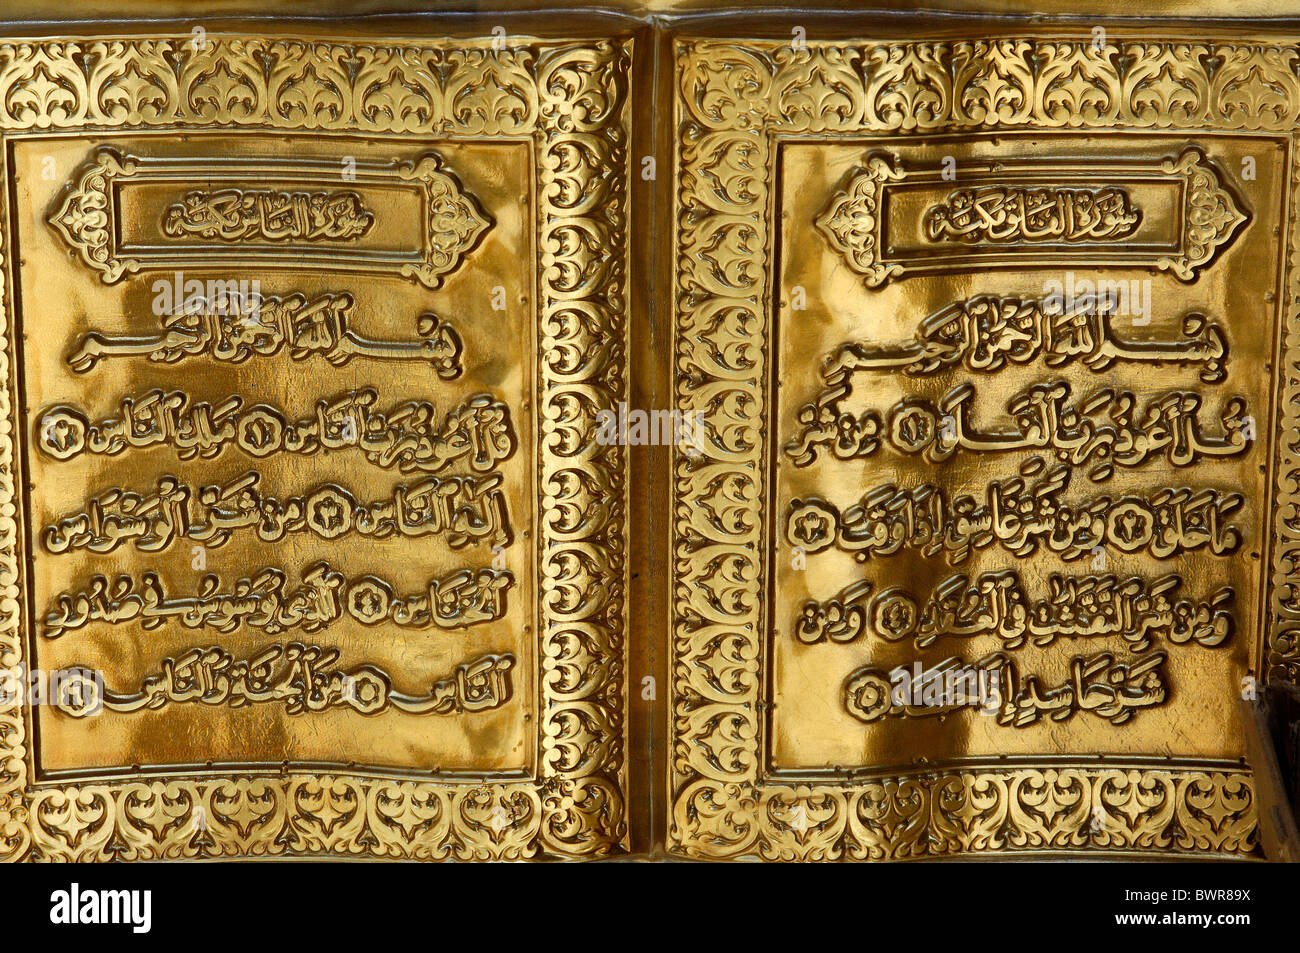 سورة الفلق مكية
بسم الله الرحمن الرحيم
قل أعوذ برب الفلق ١ من شر
ما خلق ٢ ومن شر غاسق إذا وقب ٣
ومن شر النفثت في العقد ٤ ومن
شر حاسد إذا حسد ٥
سورة الناس مكية
بسم الله الرحمن الرحيم
قل أعوذ برب الناس ١ ملك الناس ٢
إله الناس ٣ من شر الوسواس
الخناس ٤ الذي يوسوس في صدور
الناس ٥ من الجنة والناس ٦
alamy stock photo
BWR89X
www.alamy.com